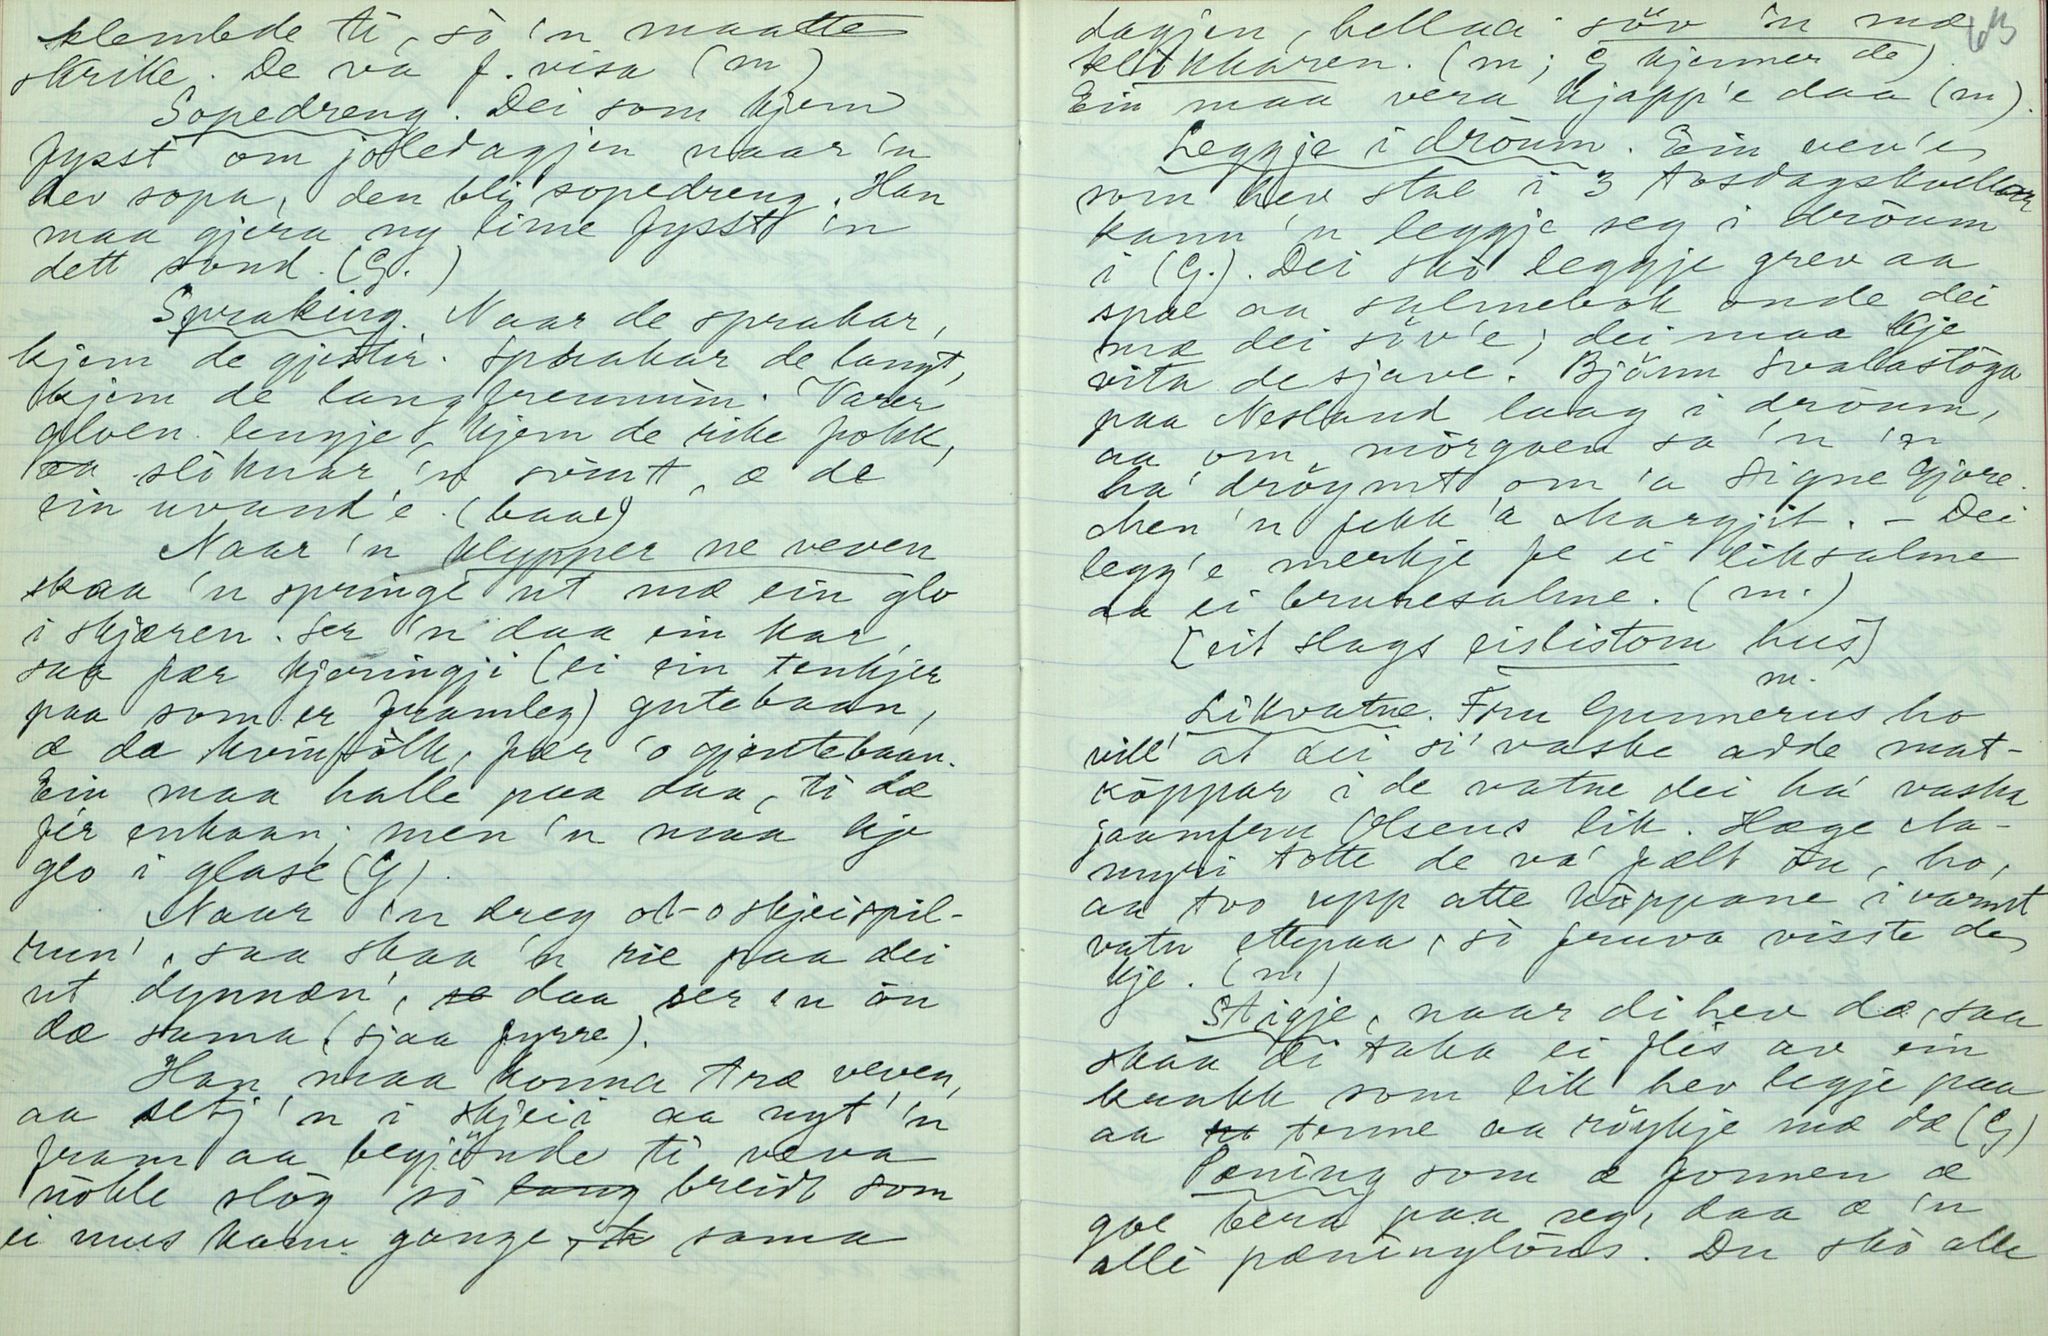 klembde ti, so 'n maatte
skrike. De va f. visa (m)
Sopedreng. Dei som kjem
fysst om joledagjen naar 'n
hev sopa, den bli sopedreng. Han
maa gjera ny lime fysst 'n
dett sund. (G.)
Spraking. Naar de sprakar,
kjem de gjestir. Sprakar de langt,
kjem de langfremmum. Varer
gloen lengje, kjem de rike folkk,
aa sloknar 'n svint, æ de
ein uvand'e. (baae)
Naar 'n klypper ne veven
skaa 'n springe ut mæ ein glo
i skjæren. Ser 'n daa ein kar,
saa fær kjeringji (ei ein tenkjer
paa som er framleg) gutebaan,
æ da kvinfolk, fær 'o gjentebaan.
Ein maa halle paa daa, ti dæ
fer enkaan; men 'n maa kje
glo i glase (G).
Naar 'n dreg ot-o skjeispil-
run', saa skaa 'n rie paa dei
ut dynnæn', daa ser 'n on
dæ sama (sjaa fyrre).
Han maa konna træ veven,
aa setj 'n i skjei aa nyt 'n
fram aa begjönde ti veva
nokle slog so lang breidt som
ei mus kann gange, sama
dagjen, hellaei söv 'n mæ
klokkaren. (m; G kjenner de).
Ein maa vera kjapp'e daa (m).
63
Leggje i dröum. Ein vev'e
som hev stae i 3 tosdagskvellar
kann 'n leggje seg i dröum
i (G.). Dei sko leggje grev aa
spae aa salmebok onde dei
mæ dei söv'e; dei maa kje
vita de sjave. Björn Svalastoga
paa Nesland laag i dröum,
aa om morgoen sa 'n 'n
ha' dröymt om 'a Signe Gjore.
Men 'n fekk 'a Margjit. – Dei
legg'e merkje fe ei liksalme
aa ei brunesalme. (m.)
[eit slags eislistom hus]
m.
Likvatne. Fru Gunnerus ho
vill' at dei si' vaske adde mat-
koppar i de vatne dei ha' vaska
jaamfru Olsens lik. Hæge Aa-
myri totte de va' fælt tu, ho,
aa tvo upp atte koppane i varmt
vatn ettepaa, so fruva visste de
kje. (m)
Stigje, naar di hev dæ, saa
skaa di taka ei flis av ein
krakk som lik hev legje paa
aa tenne aa röykje mæ dæ (G)
Pæning som æ fonnen æ
goe bera paa seg, daa æ 'n
alli pæninglöus. Du sko alle